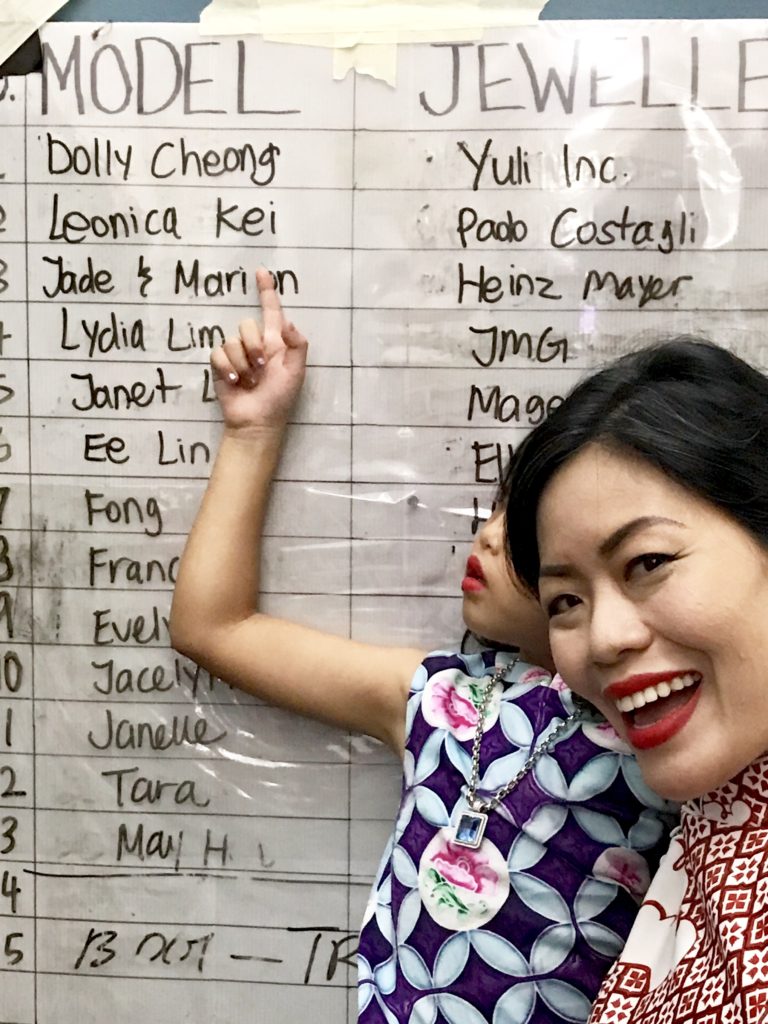 MODEL JEWELLE
1 Dolly Cheong Yuli Inc.
2 Leonica Kei Paolo Costagli
3 Jade & Marion Heinz Mayer
4 Lydia Lim JMG
5 Janet L Mage
6 Ee Lin Ell
7 Fong
8 Franc
9 Evely
10 Jacelyn
1 Janelle
2 Tara
3 May H.
4
5 — TR